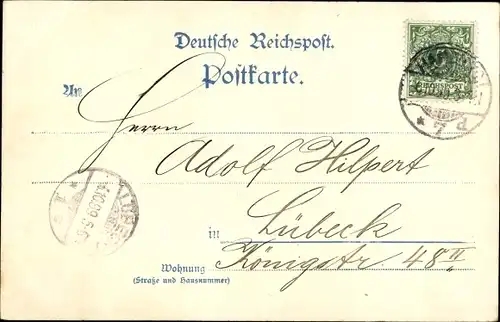 Deutsche Reichspost.
Postkarte.
An
Herrn
Adolf Hilpert
in Lübeck
Wohnung Königstr 48 II
(Straße und Hausnummer)
REICHSPOST